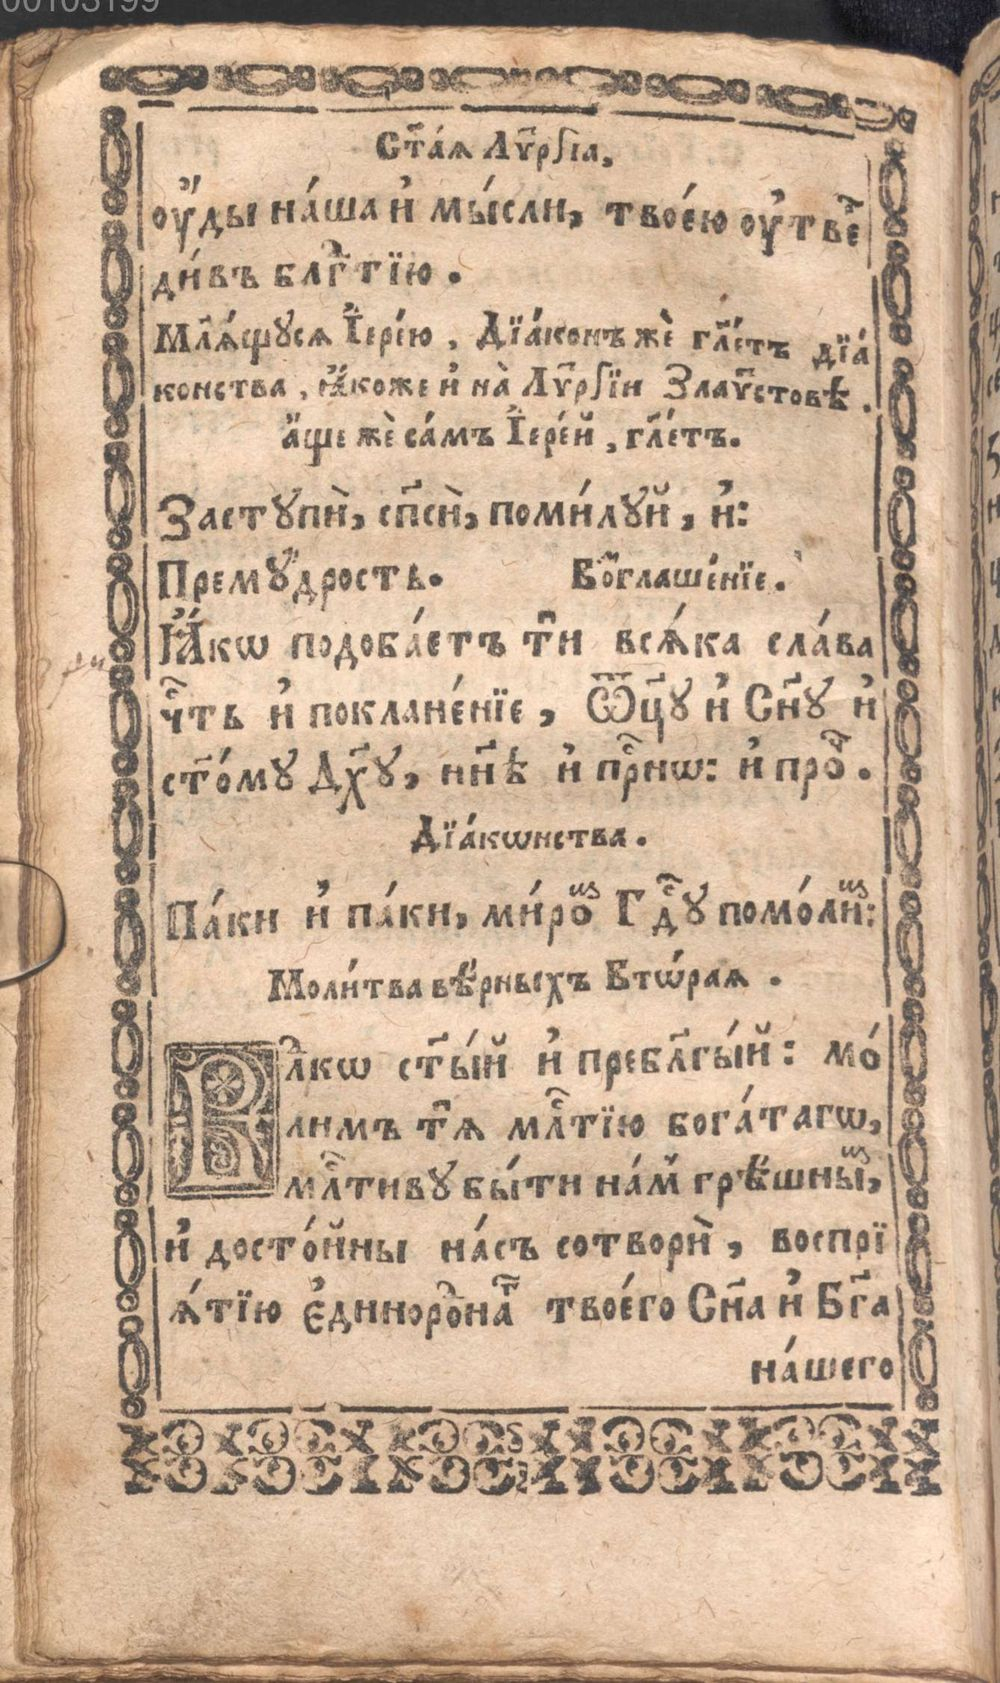 00103199
Ст҃а́ѧ Лѵ҃рꙉіа,
ѹ҆́ды на́ша и҆ мы́сли, твое́ю ѹ҆твеⷬ҇
ди́въ блг҃тїю .
Млѧ҃́щꙋсѧ І҆ере́ю , Дїа́конъ жѐ гл҃етъ дїа́
конства , ꙗ҆́коже и҆ на̀ Лѵ҃рꙉїи Злаѵ҃стовѣ .
а҆́ще жѐ са́мъ І҆ере́й , гл҃етъ.
Застꙋпѝ, сп҃сѝ, поми́лꙋй, и҆:
Премꙋ́дрость. Воⷥ҇глаше́нїе.
Ꙗ҆́кѡ подоба́етъ ти҃ всѧ́ка сла́ва
чⷭ҇ть и҆ покланѐнїе, Ѿц҃ꙋ и҆ Сн҃ꙋ и҆
ст҃о́мꙋ Дх҃ꙋ, нн҃ѣ и҆ прⷭ҇нѡ: и҆ проⷱ҇.
Дїа́кѡнства.
Па́ки и҆ па́ки, ми́роⷨ Гдⷭ҇ꙋ помо́лиⷨ:
Моли́тва вѣ́рныхъ Втѡ́раѧ .
Влⷣкѡ ст҃ы́й и҆ пребл҃гы́й: мо́
лимъ тѧ҃ млⷭ҇тїю бога́тагѡ,
млⷭ҇тивꙋ бы́ти на́м̾ грѣ́шныⷨ,
и҆ досто́йны на́съ сотворѝ, воспрї
ѧ́тїю є҆диноро́наⷢ҇ твоего Сн҃а и҆ Бг҃а
на́шего